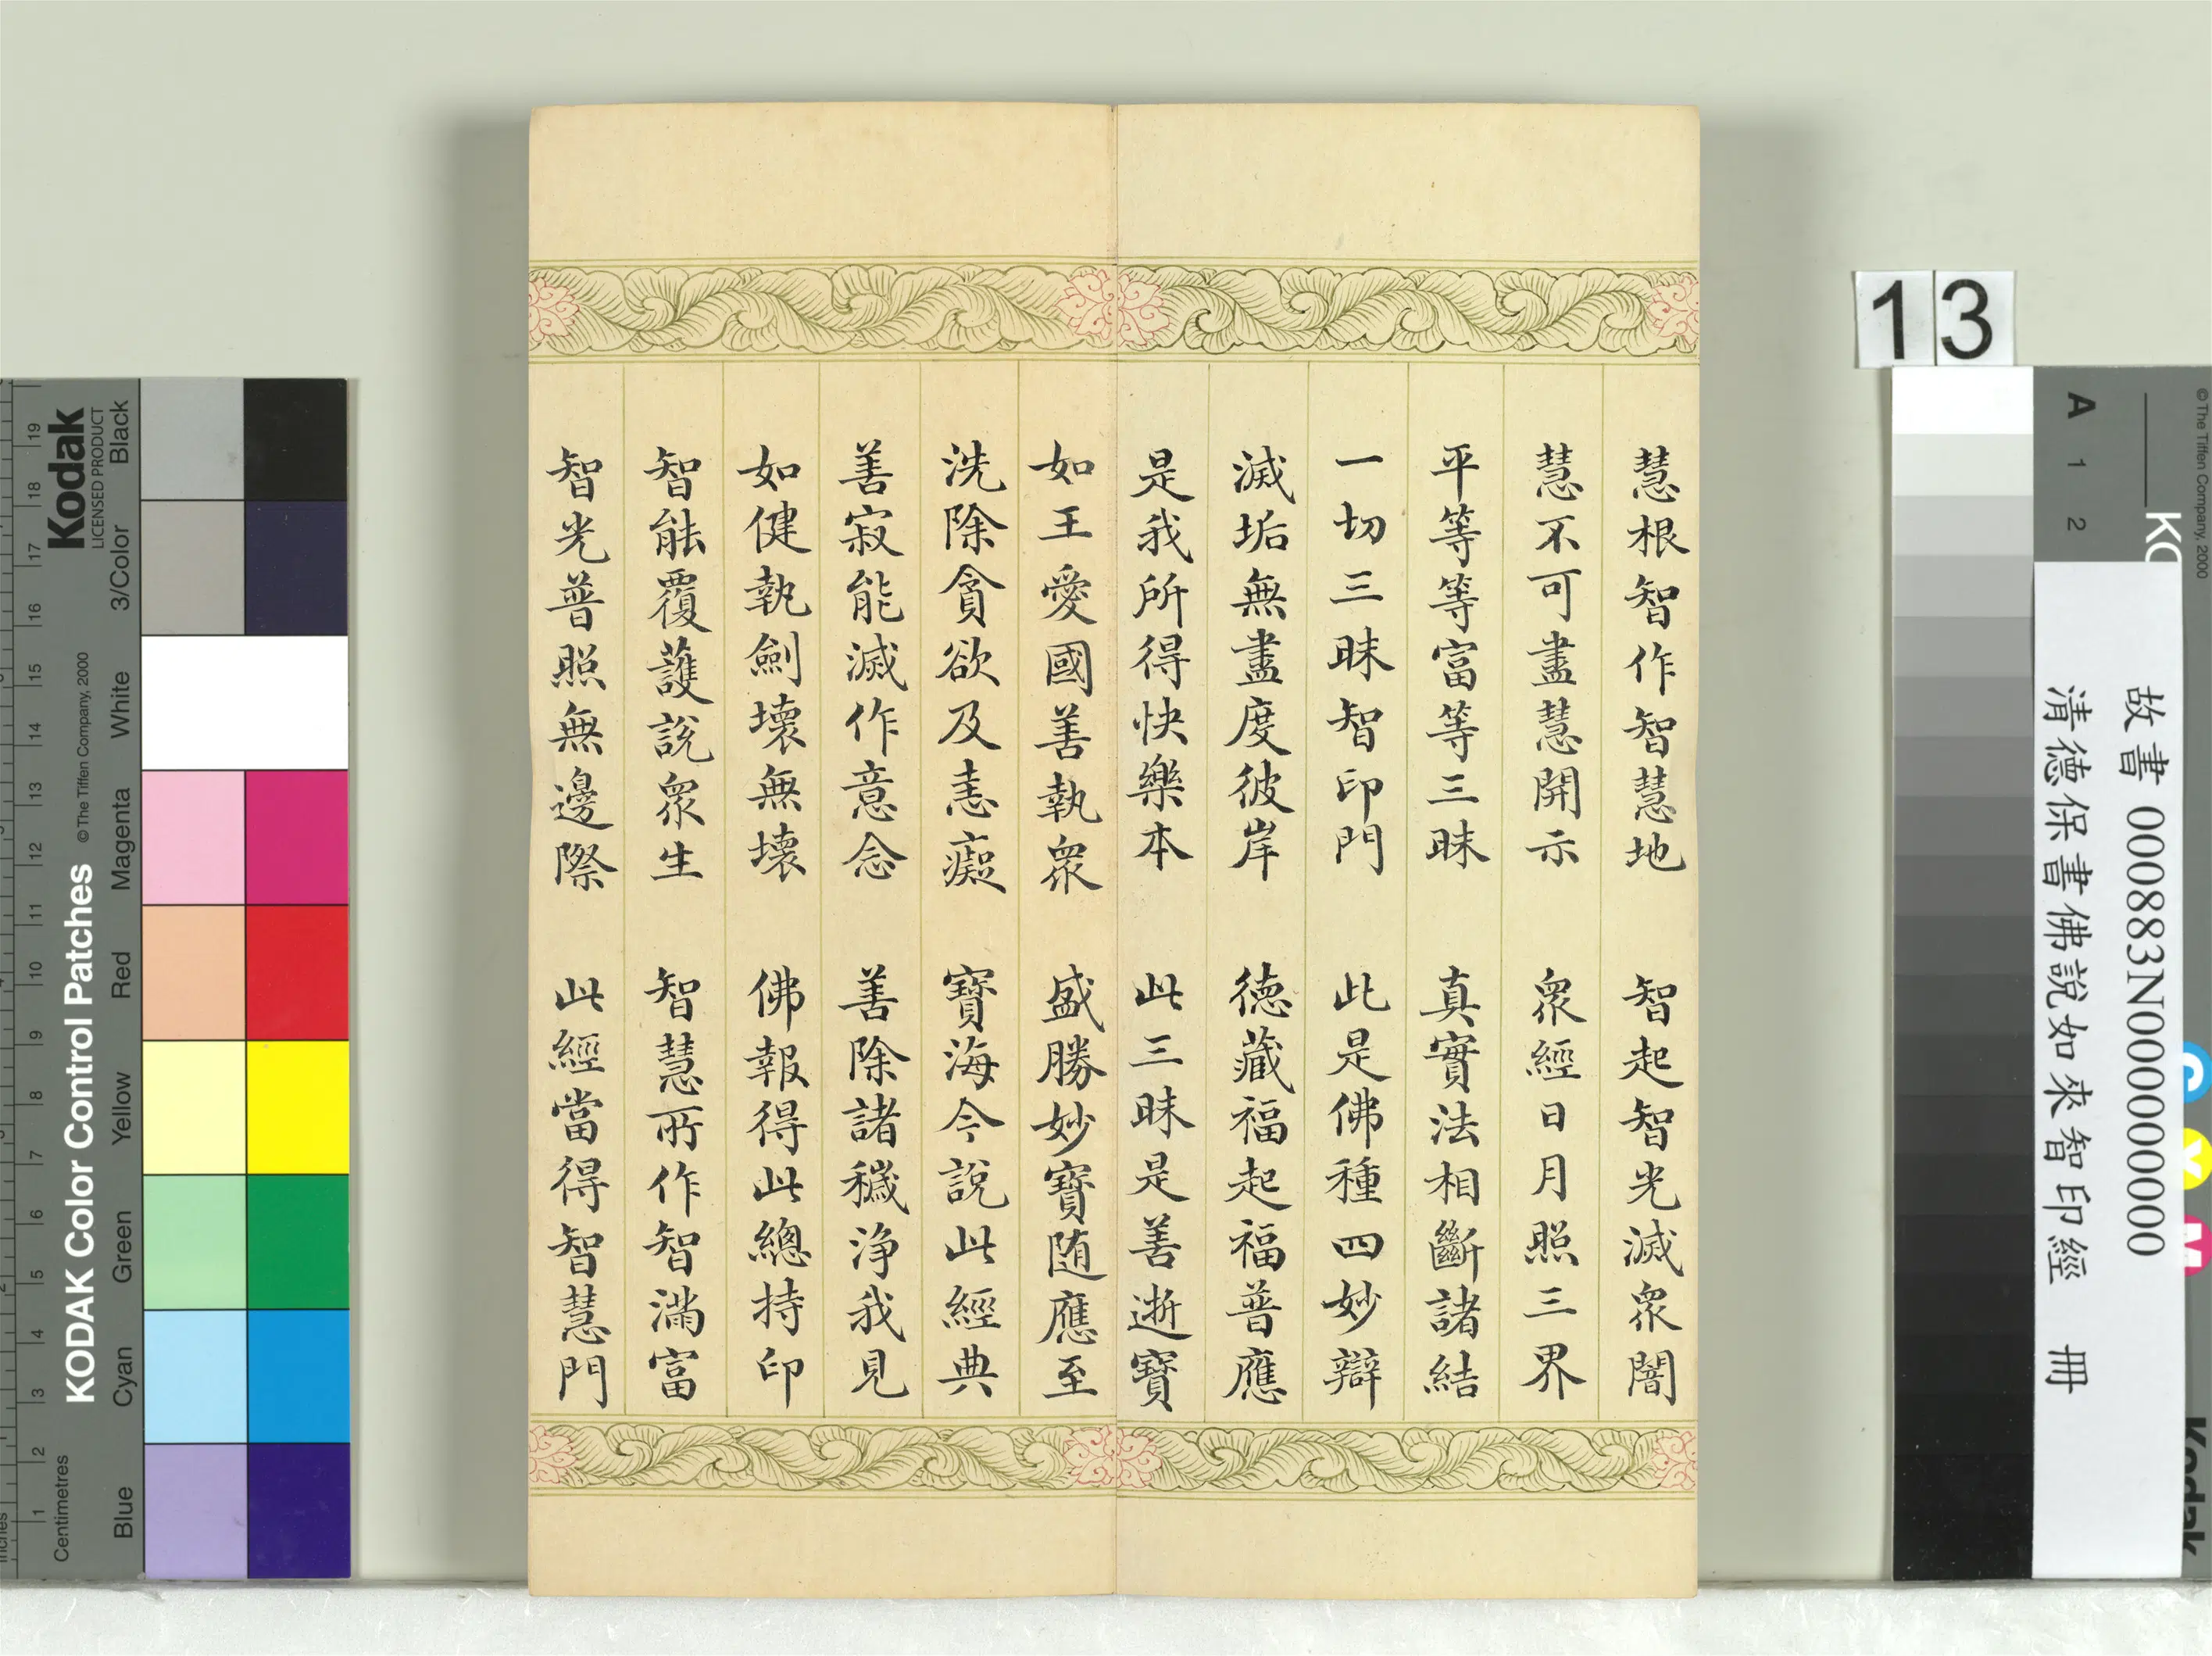 慧根智作智慧地　智起智光滅衆闇
慧不可盡慧開示　衆經日月照三界
平等等富等三昧　真實法相斷諸結
一切三昧智印門　此是佛種四妙辯
滅垢無盡度彼岸　德藏福起福普應
是我所得快樂本　此三昧是善逝寶
如王愛國善執衆　盛勝妙寶随應至
洗除貪欲及恚癡　寶海今說此經典
善寂能滅作意念　善除諸穢淨我見
如健執劍壞無壞　佛報得此總持印
智能覆護說衆生　智慧所作智滿富
智光普照無邊際　此經當得智慧門
13
故書 000883N000000000
清德保書佛說如來智印經　冊
A 1 2
© The Tiffen Company, 2000
Kodak
LICENSED PRODUCT
KODAK Color Control Patches
© The Tiffen Company, 2000
Black
3/Color
White
Magenta
Red
Yellow
Green
Cyan
Blue
Centimetres
1 2 3 4 5 6 7 8 9 10 11 12 13 14 15 16 17 18 19
Kodak